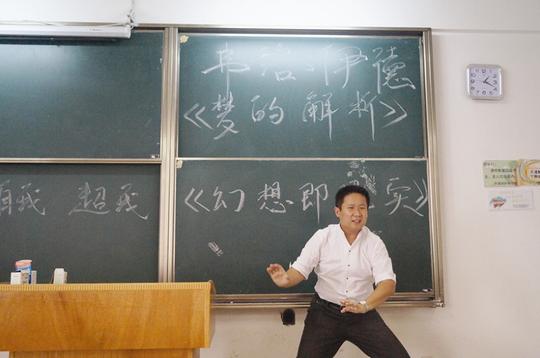 弗洛伊德
《梦的解析》
《幻想即 实》
我 超我